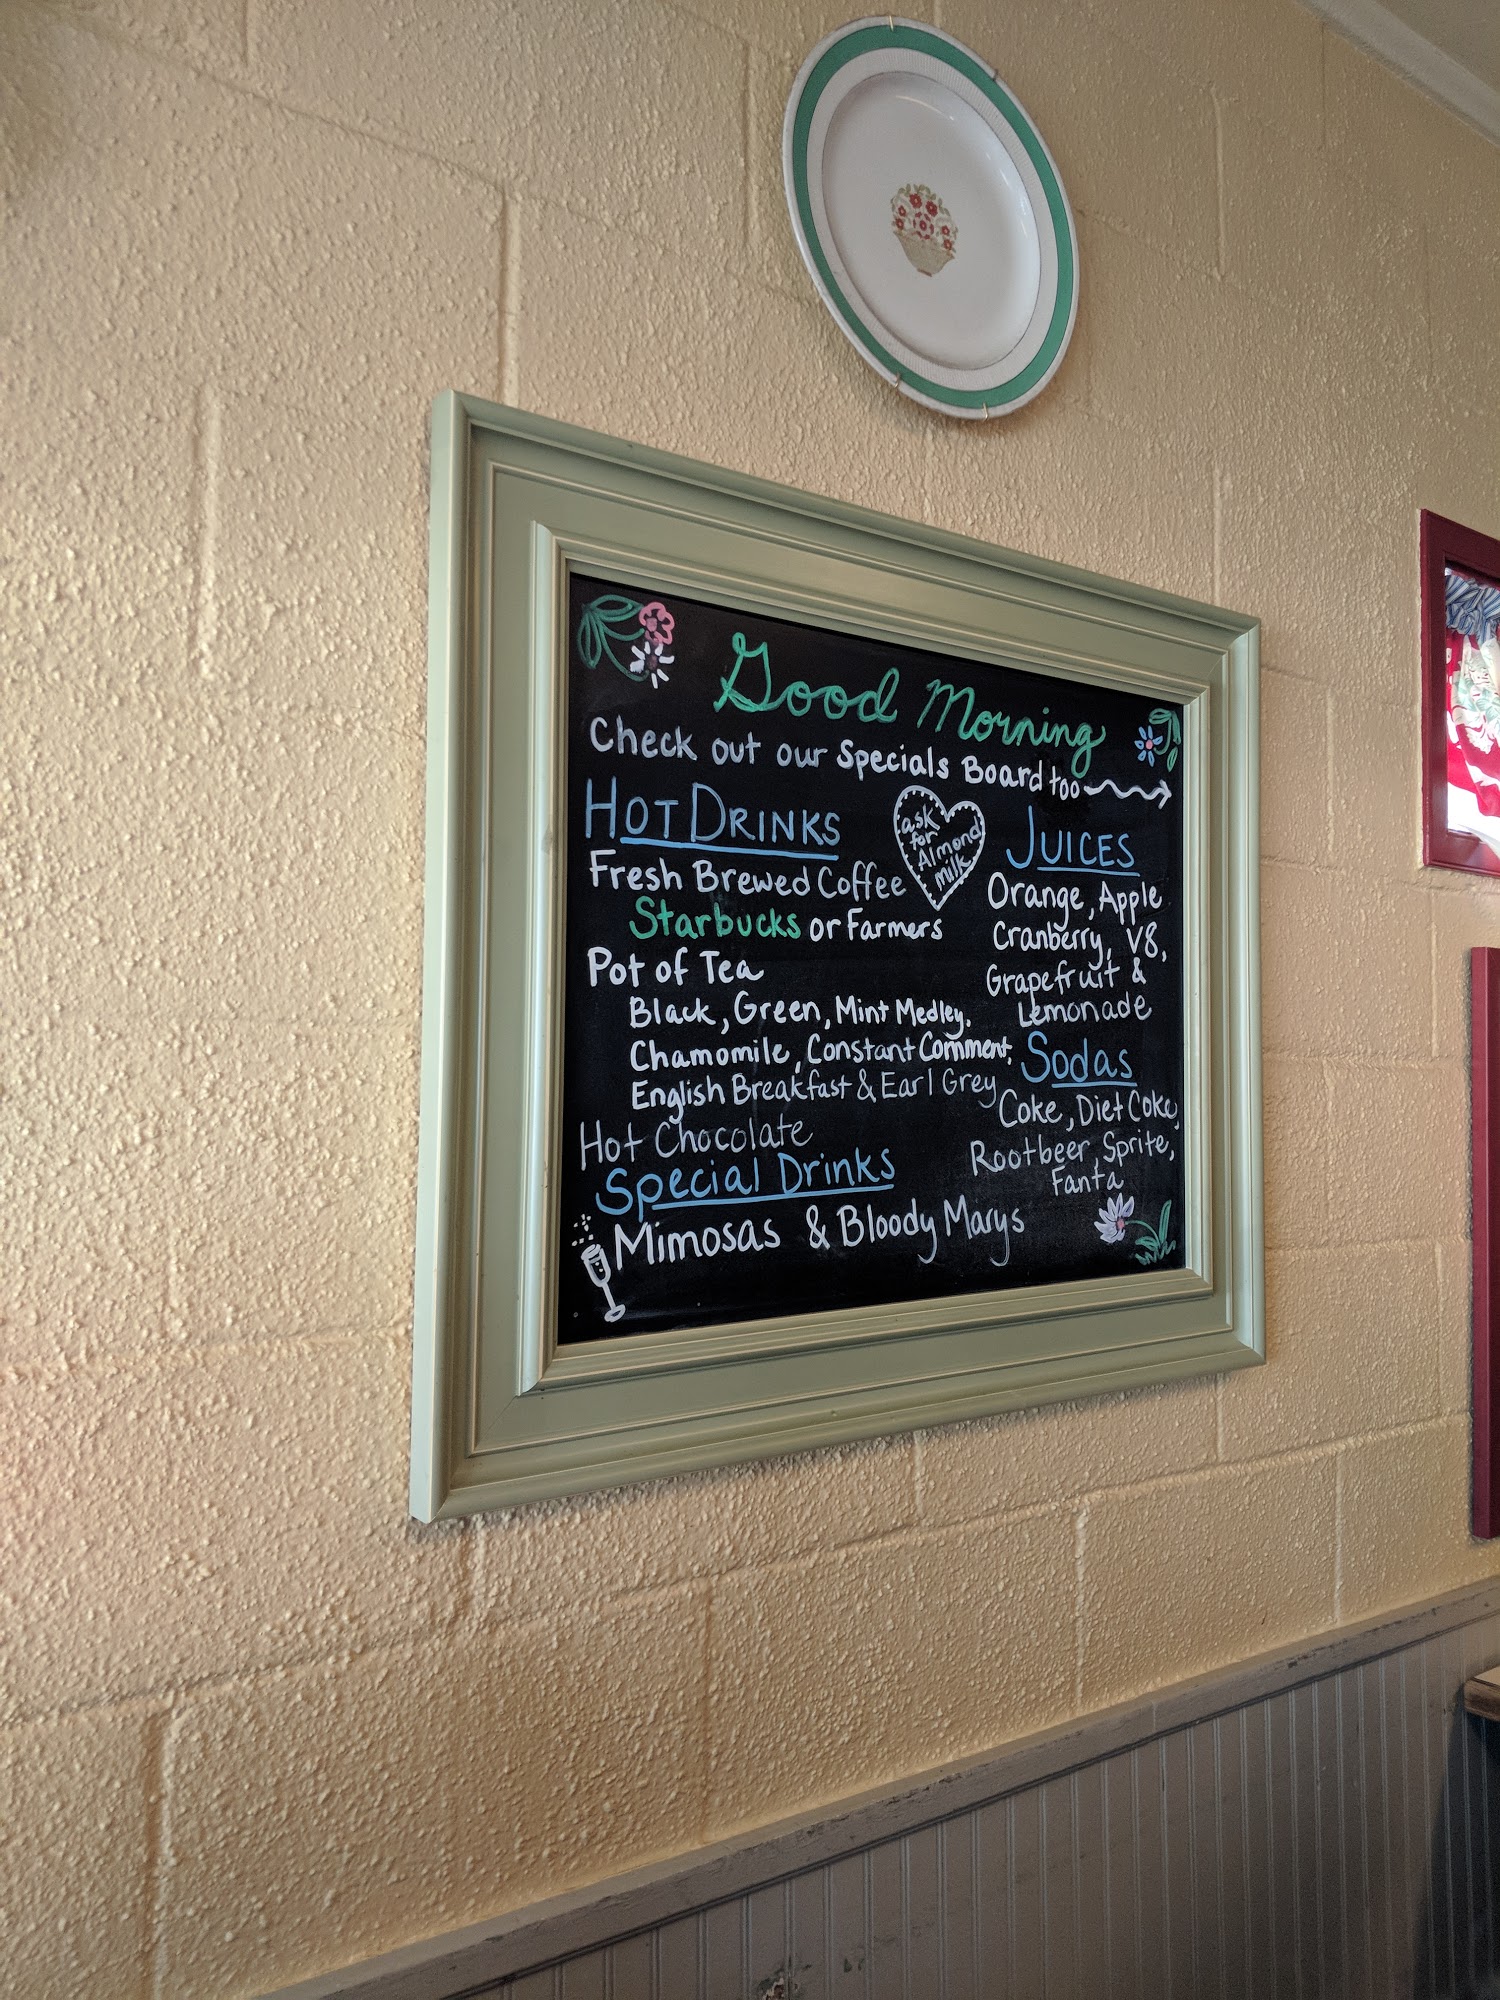 Good Morning
Check out our Specials Board too
HOT DRINKS
Fresh Brewed Coffee
Starbucks or Farmers
Pot of Tea
Black, Green, Mint Medley,
Chamomile, Constant Comment,
English Breakfast & Earl Grey
Hot Chocolate
Special Drinks
Mimosas & Bloody Marys
ask
for
Almond
milk
JUICES
Orange, Apple
Cranberry, V8,
Grapefruit &
Lemonade
Sodas
Coke, Diet Coke,
Rootbeer, Sprite,
Fanta